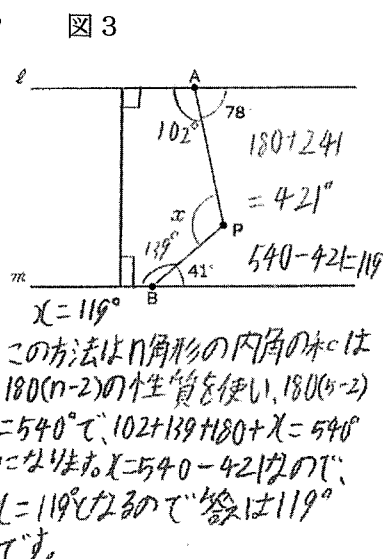 図3
ℓ
A
102°
78
180+241
=421°
x
P
139°
540-421=119
m
41°
B
x=119°
この方法はn角形の内角の和は
180(n-2)の性質を使い、180(5-2)
=540°で、102+139+180+x=540°
になります。x=540-421なので、
x=119°となるので答えは119°
です。